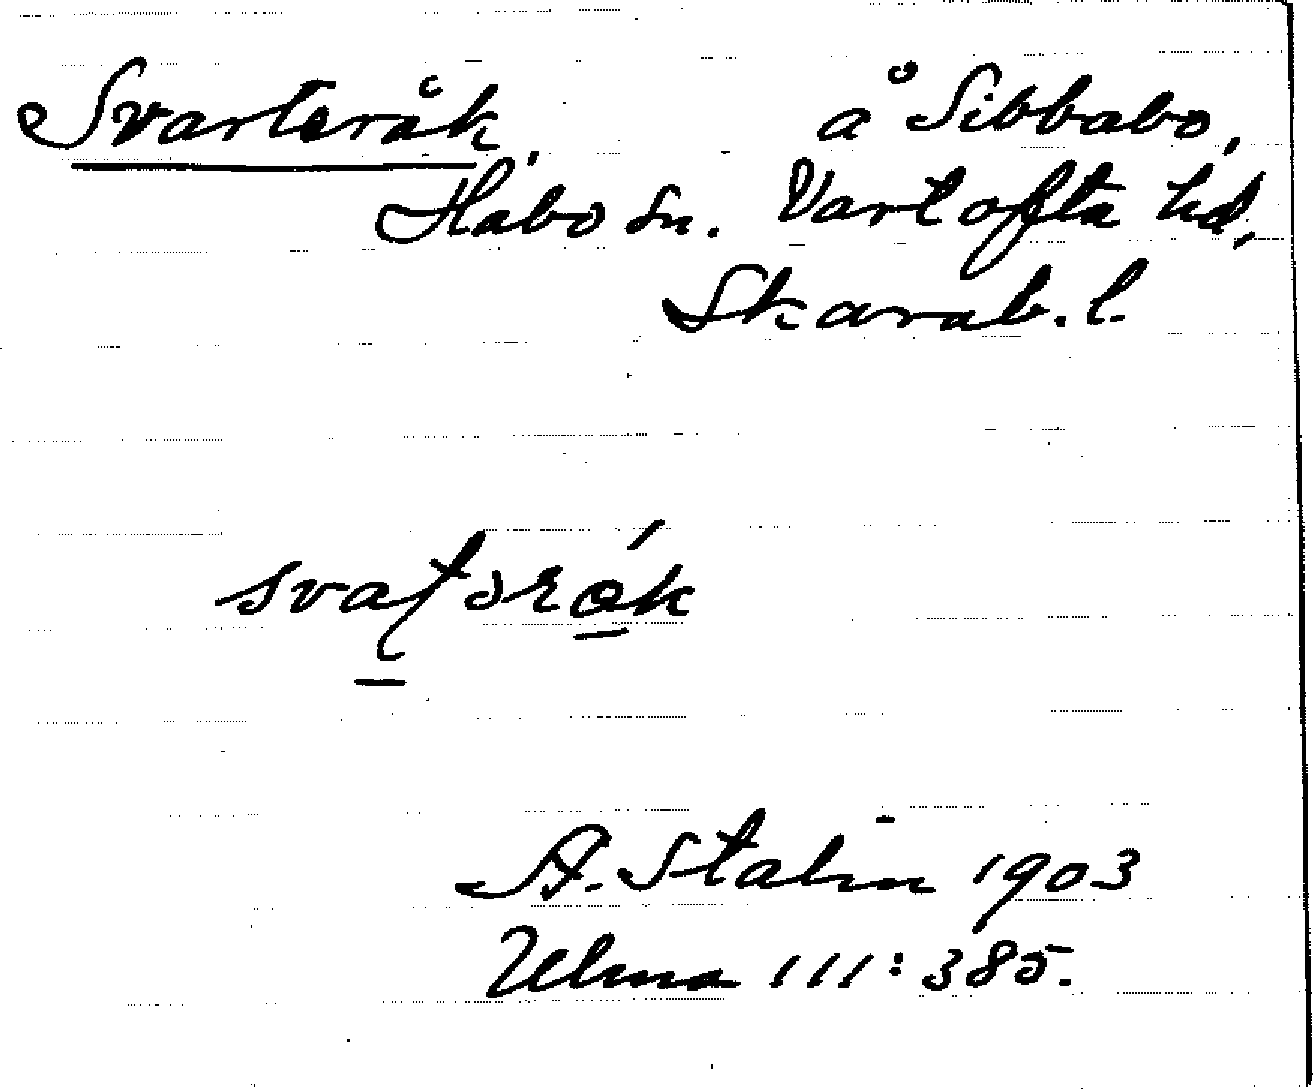 Svarteråk, å Sibbabo,
Håbo sn. Vartofta hd,
Skarab. l.
A. Stalin 1903
Ulma 111:385.